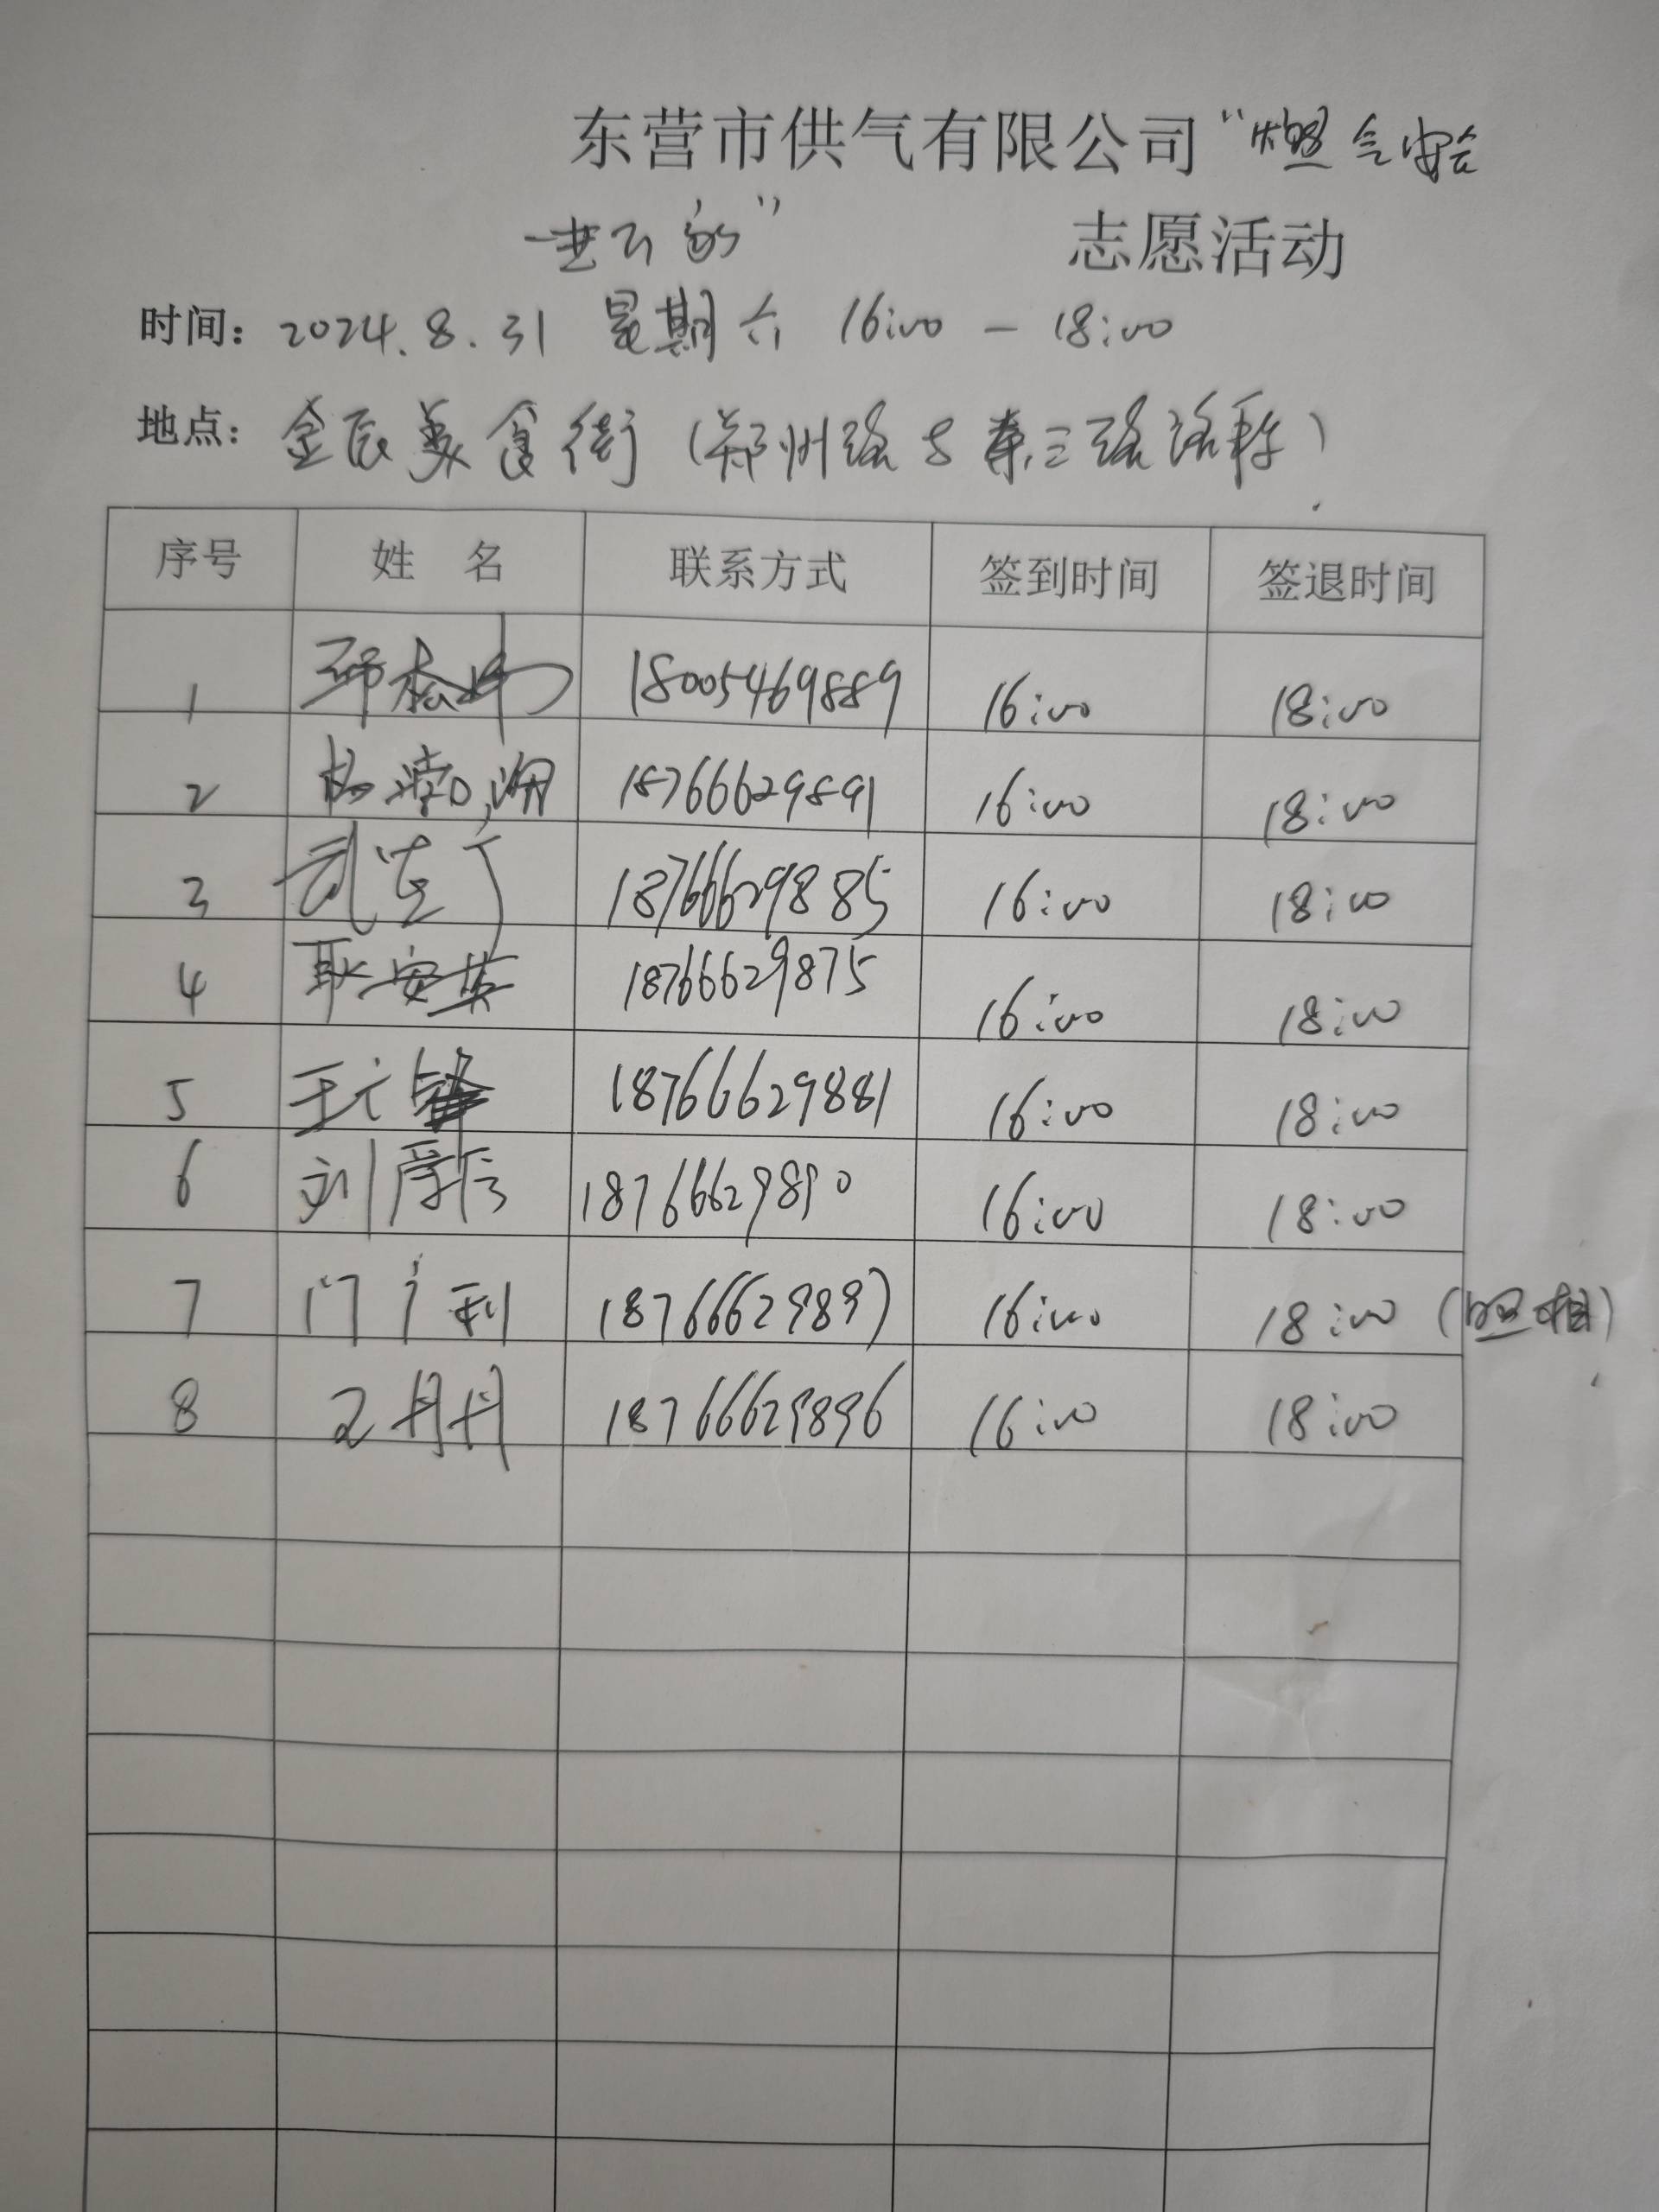 东营市供气有限公司“燃气安全
进万家”志愿活动
时间：2024.8.31 星期六 16:00-18:00
地点：金辰美食街（郑州路与东三路路东）
序号 姓 名 联系方式 签到时间 签退时间
1 18005469889 16:00 18:00
2 18766629891 16:00 18:00
3 18766629885 16:00 18:00
4 耿安英 18766629875 16:00 18:00
5 王广锋 18766629881 16:00 18:00
6 刘厚信 18766629890 16:00 18:00
7 门广利 18766629897 16:00 18:00（照相）
8 丹丹 18766629896 16:00 18:00